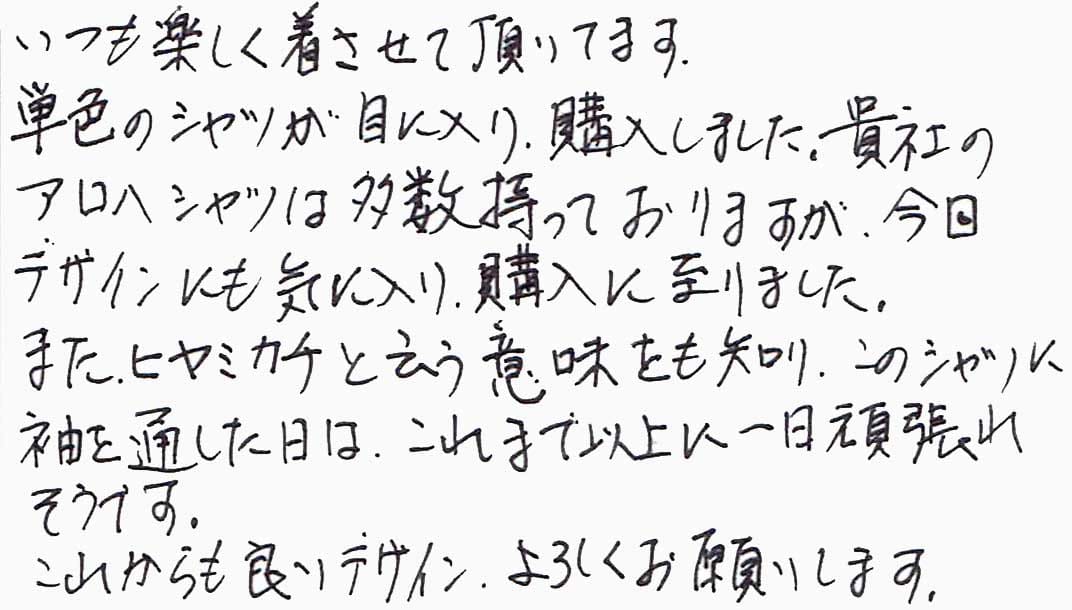 いつも楽しく着させて頂いてます.
単色のシャツが目に入り.購入しました.貴社の
アロハシャツは多数持っておりますが.今回
デザインにも気に入り.購入に至りました.
また.ヒヤミカチと云う意味をも知り.このシャツに
袖を通した日は.これまで以上に一日頑張れ
そうです.
これからも良いデザイン.よろしくお願いします.